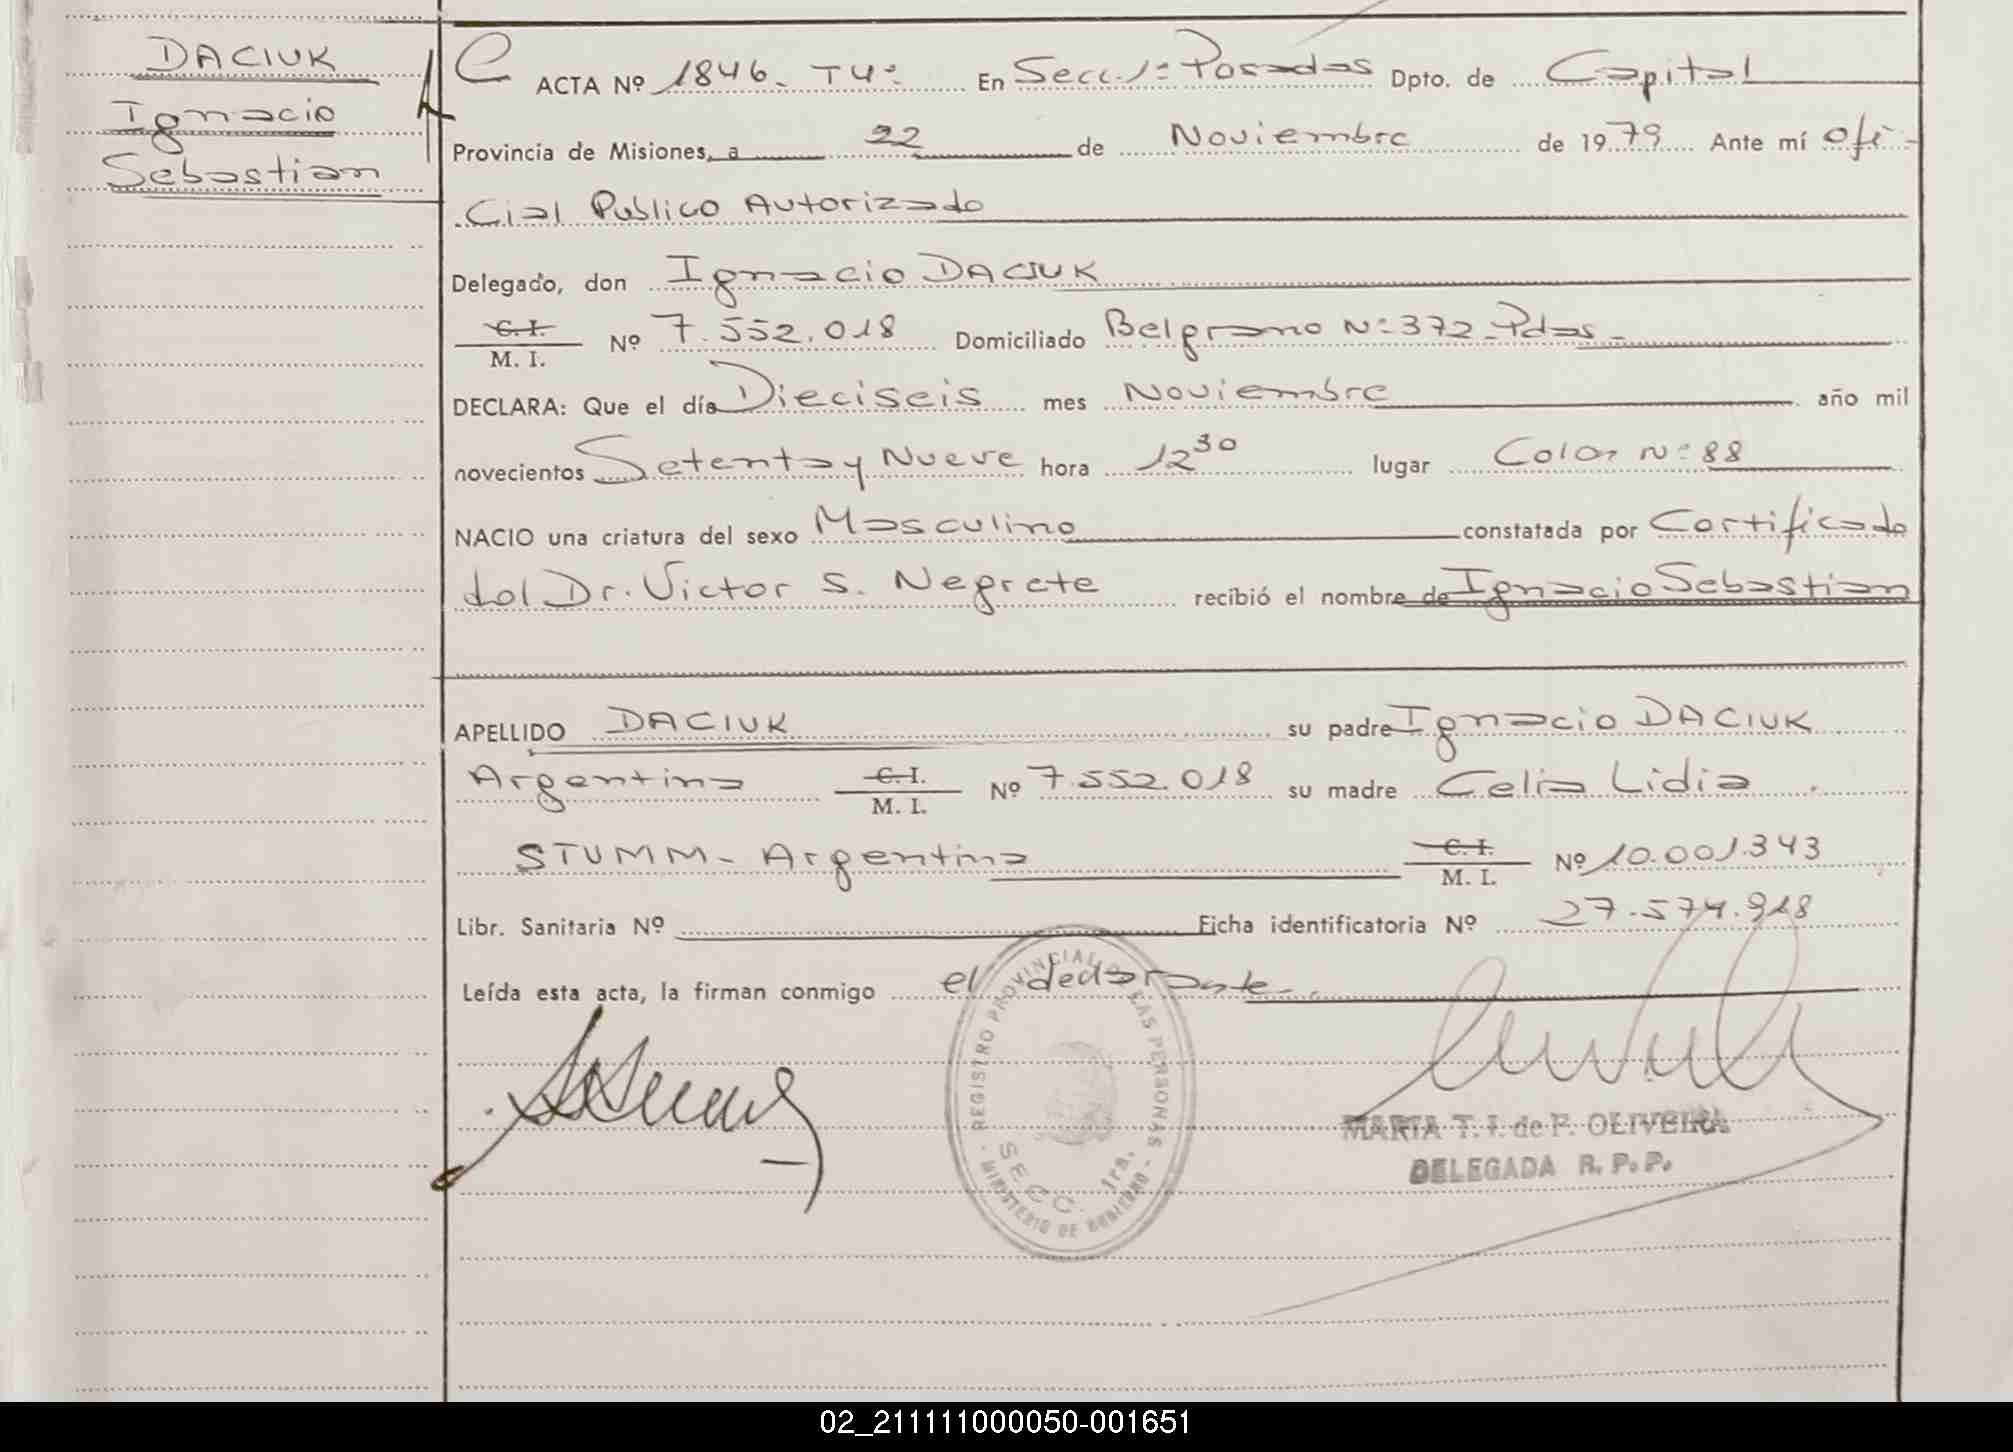 DACIUK
Ignacio
Sebastian
ACTA Nº 1846 - Tº 4º En Secc. 1ª Posadas Dpto. de Capital
Provincia de Misiones, a 22 de Noviembre de 1979 Ante mí Ofi-
cial Publico Autorizado
Delegado, don Ignacio DACIUK
C. I.
M. I. Nº 7.552.018 Domiciliado Belgrano Nº 372 - Pdas -
DECLARA: Que el día Dieciseis mes Noviembre año mil
novecientos Setenta y Nueve hora 12 30 lugar Colon Nº 88
NACIO una criatura del sexo Masculino constatada por Certificado
del Dr. Victor S. Negrete recibió el nombre de Ignacio Sebastian
APELLIDO DACIUK su padre Ignacio DACIUK
Argentino C. I. / M. I. Nº 7.552.018 su madre Celia Lidia
STUMM - Argentina C. I. / M. I. Nº 10.001.343
Libr. Sanitaria Nº Ficha identificatoria Nº 27.574.918
Leída esta acta, la firman conmigo el declarante -
REGISTRO PROVINCIAL DE LAS PERSONAS
SECC. 1ra.
MINISTERIO DE GOBIERNO
MARIA T. I. de F. OLIVEIRA
DELEGADA R. P. P.
02_211111000050-001651